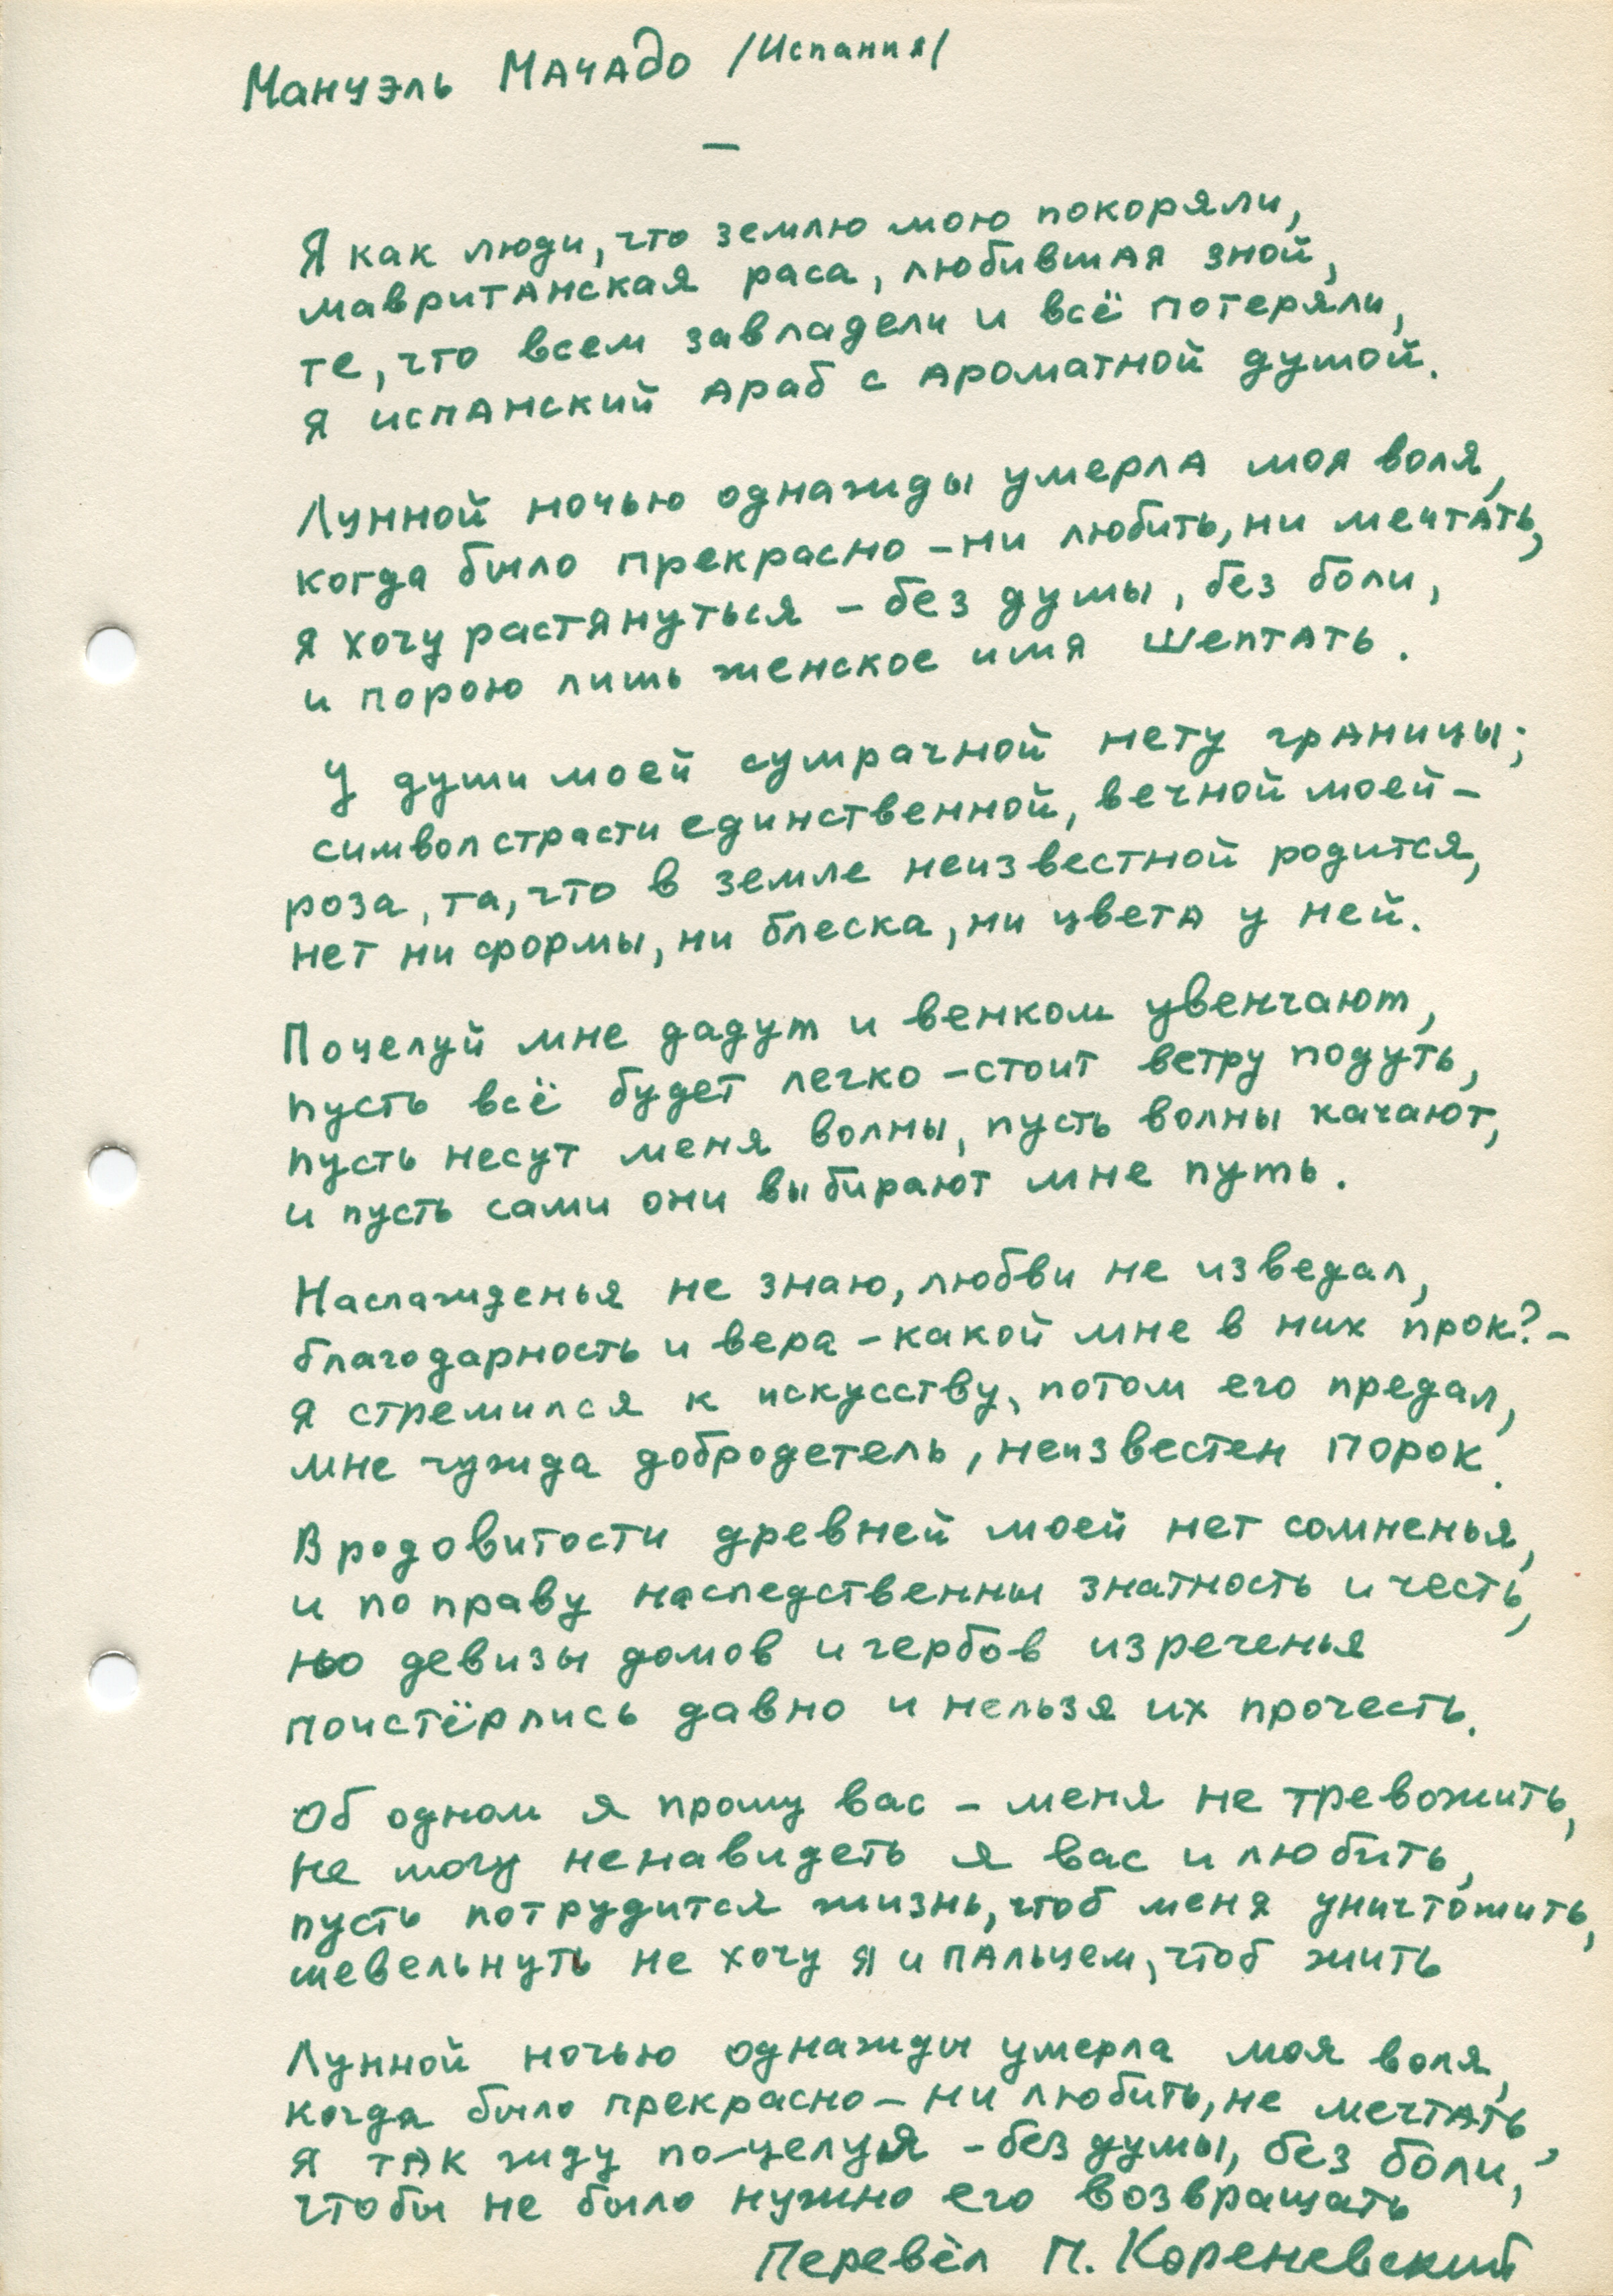 Мануэль Мачадо /Испания/
—
Я как люди, что землю мою покоряли,
мавританская раса, любившая зной,
те, что всем завладели и всё потеряли,
я испанский араб с ароматной душой.
Лунной ночью однажды умерла моя воля,
когда было прекрасно – ни любить, ни мечтать,
я хочу растянуться – без думы, без боли,
и порою лишь женское имя шептать.
У души моей сумрачной нету границы;
символ страсти единственной, вечной моей –
роза, та, что в земле неизвестной родится,
нет ни формы, ни блеска, ни цвета у ней.
Поцелуй мне дадут и венком увенчают,
пусть всё будет легко – стоит ветру подуть,
пусть несут меня волны, пусть волны качают,
и пусть сами они выбирают мне путь.
Наслажденья не знаю, любви не изведал,
благодарность и вера – какой мне в них прок? –
я стремился к искусству, потом его предал,
мне чужда добродетель, неизвестен порок.
В родовитости древней моей нет сомненья,
и по праву наследственны знатность и честь,
но девизы домов и гербов изреченья
поистёрлись давно и нельзя их прочесть.
Об одном я прошу вас – меня не тревожить,
не могу ненавидеть я вас и любить,
пусть потрудится жизнь, чтоб меня уничтожить,
шевельнуть не хочу я и пальцем, чтоб жить
Лунной ночью однажды умерла моя воля,
когда было прекрасно – ни любить, не мечтать,
я так жду по-целуя – без думы, без боли,
чтобы не было нужно его возвращать
Перевёл П. Кореневский